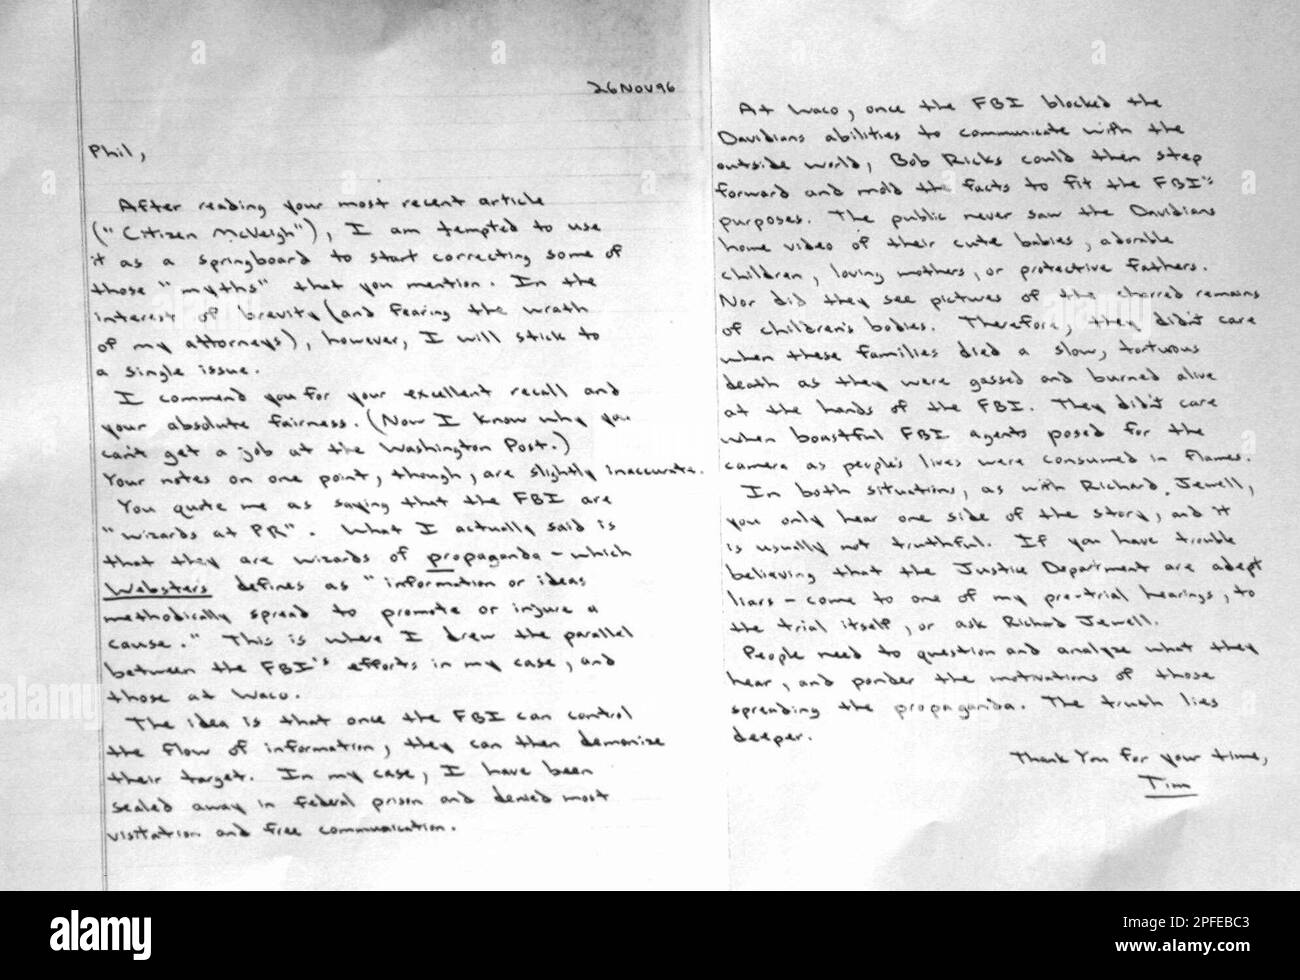 26NOV96
Phil,
After reading your most recent article
("Citizen McVeigh"), I am tempted to use
it as a springboard to start correcting some of
those "myths" that you mention. In the
interest of brevity (and fearing the wrath
of my attorneys), however, I will stick to
a single issue.
I commend you for your excellent recall and
your absolute fairness. (Now I know why you
can't get a job at the Washington Post.)
Your notes on one point, though, are slightly inaccurate.
You quote me as saying that the FBI are
"wizards at PR". What I actually said is
that they are wizards of propaganda - which
Websters defines as "information or ideas
methodically spread to promote or injure a
cause." This is where I drew the parallel
between the FBI's efforts in my case, and
those at Waco.
The idea is that once the FBI can control
the flow of information, they can then demonize
their target. In my case, I have been
sealed away in federal prison and denied most
visitation and free communication.
At Waco, once the FBI blocked the
Davidians abilities to communicate with the
outside world, Bob Ricks could then step
forward and mold the facts to fit the FBI's
purposes. The public never saw the Davidians
home video of their cute babies, adorable
children, loving mothers, or protective fathers.
Nor did they see pictures of the charred remains
of children's bodies. Therefore, they didn't care
when these families died a slow, tortuous
death as they were gassed and burned alive
at the hands of the FBI. They didn't care
when boastful FBI agents posed for the
camera as people's lives were consumed in flames.
In both situations, as with Richard Jewell,
you only hear one side of the story, and it
is usually not truthful. If you have trouble
believing that the Justice Department are adept
liars - come to one of my pre-trial hearings, to
the trial itself, or ask Richard Jewell.
People need to question and analyze what they
hear, and ponder the motivations of those
spreading the propaganda. The truth lies
deeper.
Thank You for your time,
Tim
alamy
Image ID: 2PFEBC3
www.alamy.com